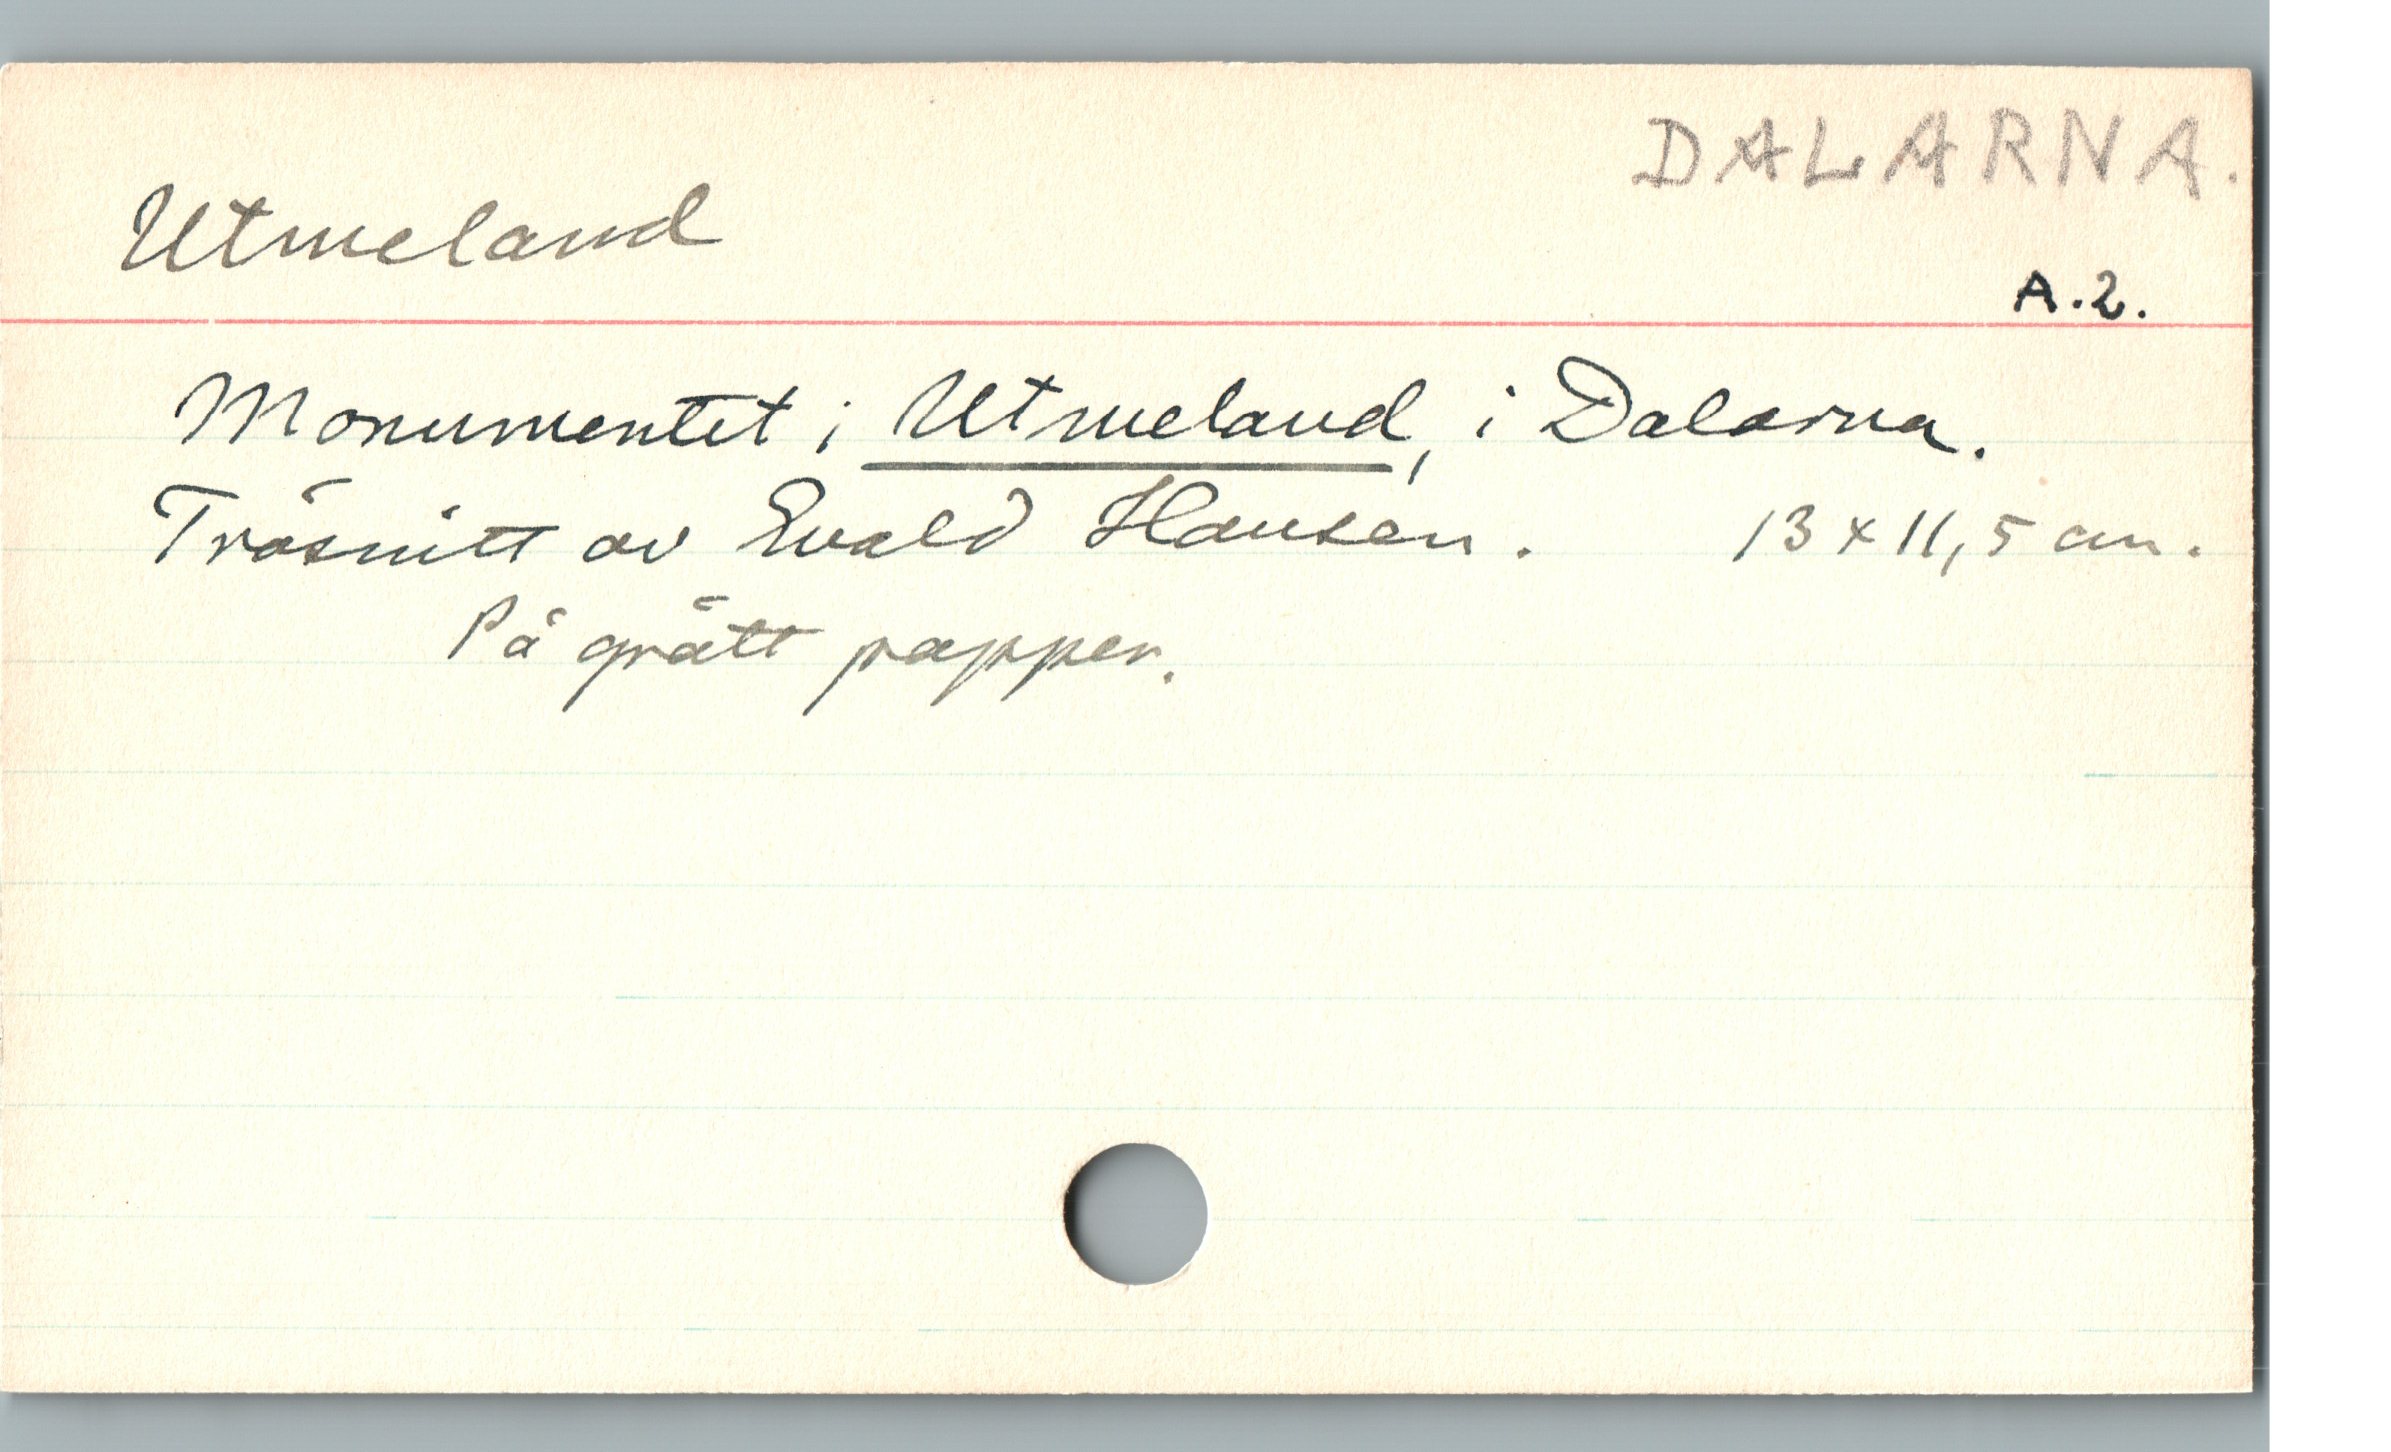 DALARNA.
Utmeland
A.2.
Monumentet i Utmeland, i Dalarna.
Träsnitt av Evald Hansen. 13 x 11,5 cm.
På grått papper.